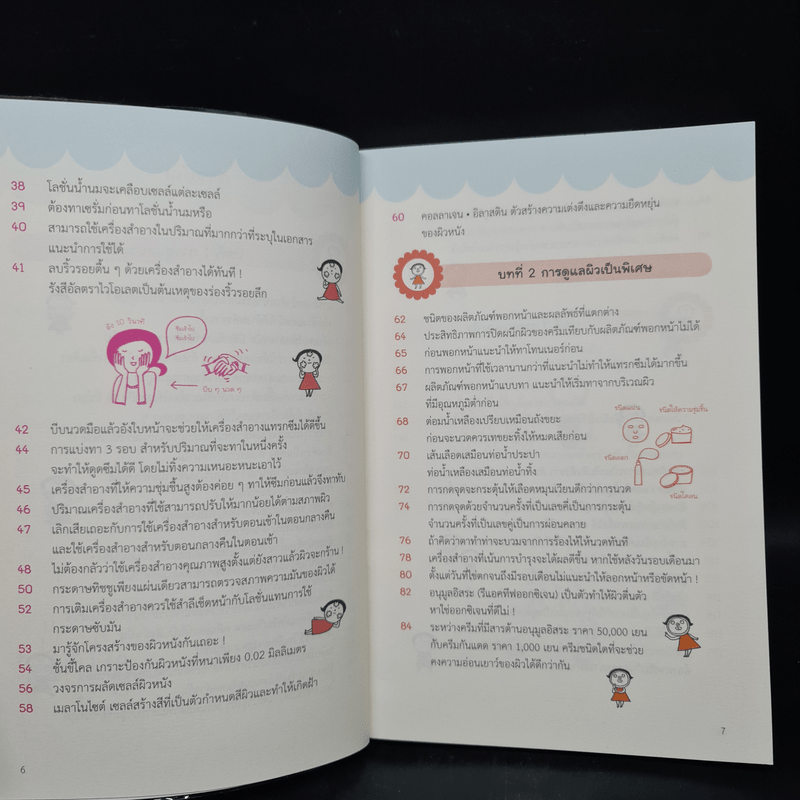 38 โลชั่นน้ำนมจะเคลือบเซลล์แต่ละเซลล์
39 ต้องทาเซรั่มก่อนทาโลชั่นน้ำนมหรือ
40 สามารถใช้เครื่องสำอางในปริมาณที่มากกว่าที่ระบุในเอกสาร
แนะนำการใช้ได้
41 ลบริ้วรอยตื้น ๆ ด้วยเครื่องสำอางได้ทันที !
รังสีอัลตราไวโอเลตเป็นต้นเหตุของร่องริ้วรอยลึก
อุ่น 10 วินาที
ซึมเข้าไป
ซึมเข้าไป
บีบ ๆ นวด ๆ
42 บีบนวดมือแล้วอังใบหน้าจะช่วยให้เครื่องสำอางแทรกซึมได้ดีขึ้น
44 การแบ่งทา 3 รอบ สำหรับปริมาณที่จะทาในหนึ่งครั้ง
จะทำให้ดูดซึมได้ดี โดยไม่ทิ้งความเหนอะหนะเอาไว้
45 เครื่องสำอางที่ให้ความชุ่มชื้นสูงต้องค่อย ๆ ทาให้ซึมก่อนแล้วจึงทาทับ
46 ปริมาณเครื่องสำอางที่ใช้สามารถปรับให้มากน้อยได้ตามสภาพผิว
47 เลิกเสียเถอะกับการใช้เครื่องสำอางสำหรับตอนเช้าในตอนกลางคืน
และใช้เครื่องสำอางสำหรับตอนกลางคืนในตอนเช้า
48 ไม่ต้องกลัวว่าใช้เครื่องสำอางคุณภาพสูงตั้งแต่ยังสาวแล้วผิวจะกร้าน !
50 กระดาษทิชชูเพียงแผ่นเดียวสามารถตรวจสภาพความมันของผิวได้
52 การเติมเครื่องสำอางควรใช้สำลีเช็ดหน้ากับโลชั่นแทนการใช้
กระดาษซับมัน
53 มารู้จักโครงสร้างของผิวหนังกันเถอะ !
54 ชั้นขี้ไคล เกราะป้องกันผิวหนังที่หนาเพียง 0.02 มิลลิเมตร
56 วงจรการผลัดเซลล์ผิวหนัง
58 เมลาโนไซต์ เซลล์สร้างสีที่เป็นตัวกำหนดสีผิวและทำให้เกิดฝ้า
6
60 คอลลาเจน • อิลาสติน ตัวสร้างความเต่งตึงและความยืดหยุ่น
ของผิวหนัง
บทที่ 2 การดูแลผิวเป็นพิเศษ
62 ชนิดของผลิตภัณฑ์พอกหน้าและผลลัพธ์ที่แตกต่าง
64 ประสิทธิภาพการปิดผนึกผิวของครีมเทียบกับผลิตภัณฑ์พอกหน้าไม่ได้
65 ก่อนพอกหน้าแนะนำให้ทาโทนเนอร์ก่อน
66 การพอกหน้าที่ใช้เวลานานกว่าที่แนะนำไม่ทำให้แทรกซึมได้มากขึ้น
67 ผลิตภัณฑ์พอกหน้าแบบทา แนะนำให้เริ่มทาจากบริเวณผิว
ที่มีอุณหภูมิต่ำก่อน
68 ต่อมน้ำเหลืองเปรียบเหมือนถังขยะ
ก่อนจะนวดควรเทขยะทิ้งให้หมดเสียก่อน
70 เส้นเลือดเสมือนท่อน้ำประปา
ท่อน้ำเหลืองเสมือนท่อน้ำทิ้ง
ชนิดแผ่น
ชนิดให้ความชุ่มชื้น
ชนิดลอก
ชนิดโคลน
72 การกดจุดจะกระตุ้นให้เลือดหมุนเวียนดีกว่าการนวด
74 การกดจุดด้วยจำนวนครั้งที่เป็นเลขคี่เป็นการกระตุ้น
จำนวนครั้งที่เป็นเลขคู่เป็นการผ่อนคลาย
76 ถ้าคิดว่าตาทำท่าจะบวมจากการร้องไห้ให้นวดทันที
78 เครื่องสำอางที่เน้นการบำรุงจะได้ผลดีขึ้น หากใช้หลังวันรอบเดือนมา
80 ตั้งแต่วันที่ไข่ตกจนถึงมีรอบเดือนไม่แนะนำให้ลอกหน้าหรือขัดหน้า !
82 อนุมูลอิสระ (รีแอคทีฟออกซิเจน) เป็นตัวทำให้ผิวตื่นตัว
หาใช่ออกซิเจนที่ดีไม่ !
84 ระหว่างครีมที่มีสารต้านอนุมูลอิสระ ราคา 50,000 เยน
กับครีมกันแดด ราคา 1,000 เยน ครีมชนิดใดที่จะช่วย
คงความอ่อนเยาว์ของผิวได้ดีกว่ากัน
7